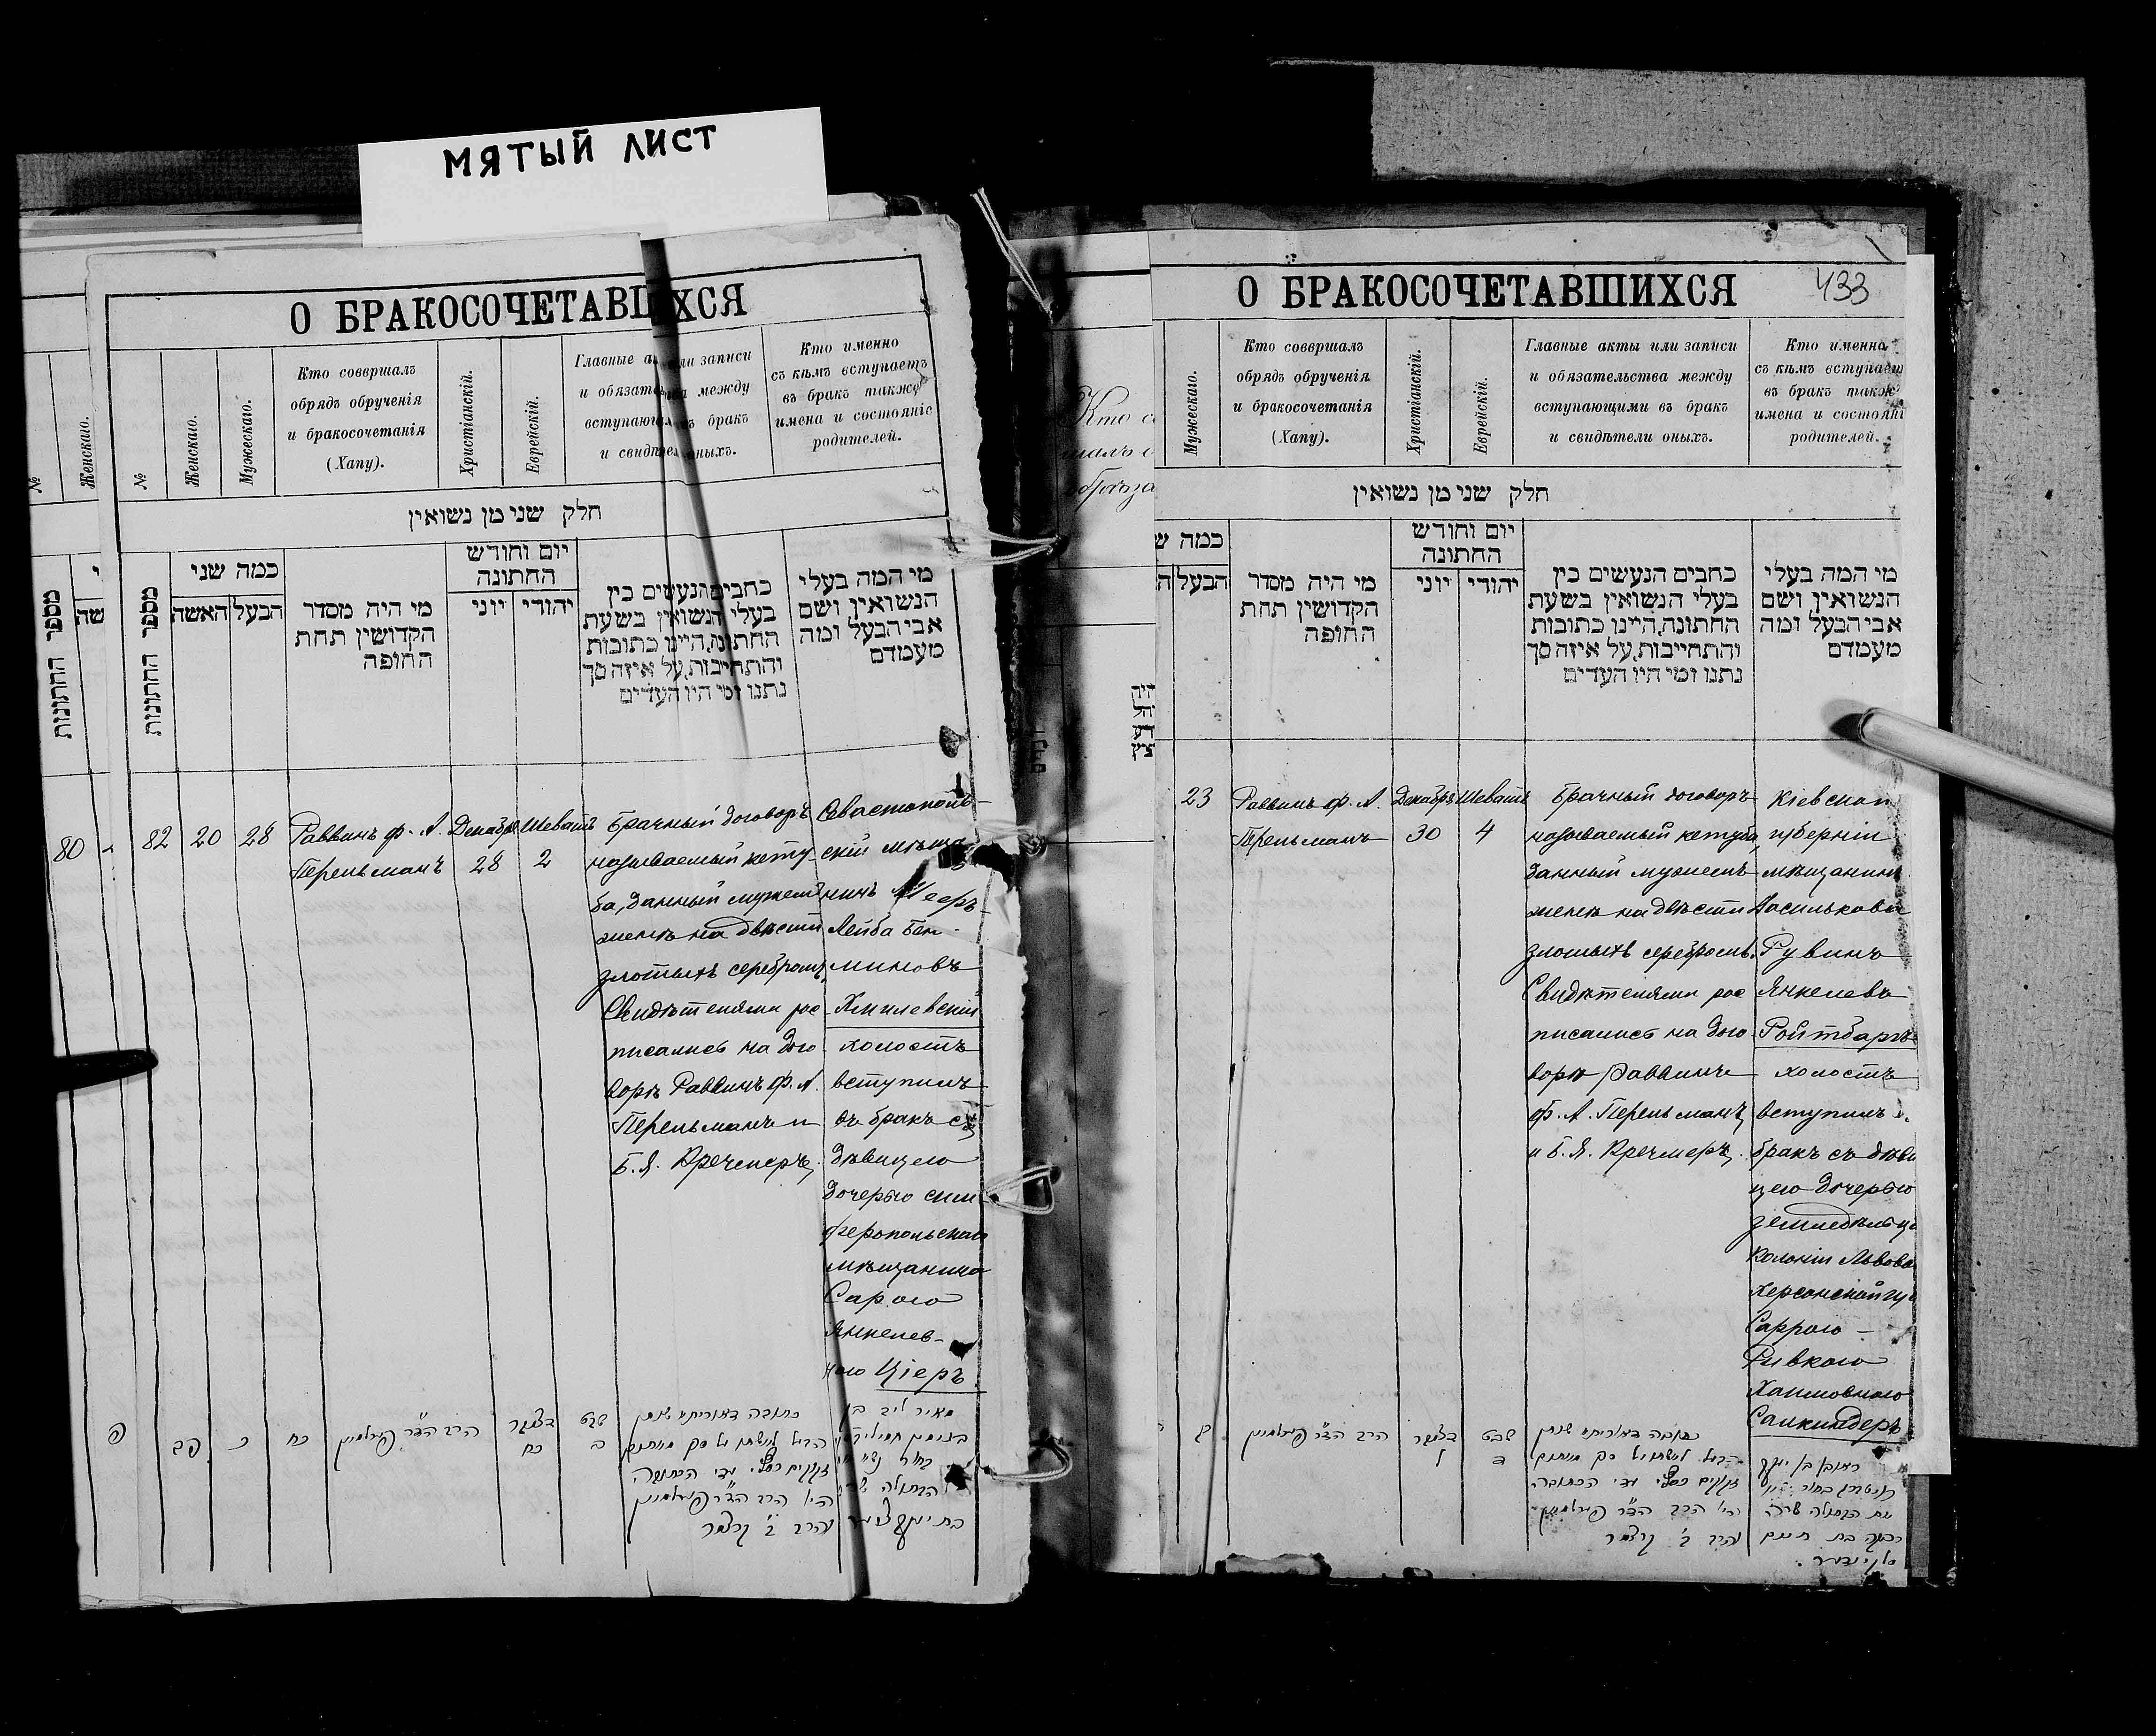 МЯТЫЙ ЛИСТ
О БРАКОСОЧЕТАВШИХСЯ
№
Женскаго.
№
Женскаго.
Мужескаго.
Кто совершалъ
обрядъ обрученія
и бракосочетанія
(Хапу).
Христіанскій.
Еврейскій.
Главные а или записи
и обязате а между
вступающи ъ бракъ
и свидѣтел оныхъ.
Кто именно
съ кѣмъ вступаетъ
въ бракъ также
имена и состояніе
родителей.
חלק שני מן נשואין
מספר החתונות
שה
מספר החתונות
כמה שני
האשה
הבעל
מי היה מסדר
הקדושין תחת
החופה
יום וחודש
החתונה
יוני
יהודי
כתבים הנעשים בין
בעלי הנשואין בשעת
החתונה, היינו כתובות
והתחייבות, על איזה סך
נתנו ומי היו העדים
מי המה בעלי
הנשואין ושם
אבי הבעל ומה
מעמדם
80
82
20
28
Раввинъ Ф. А.
Перельманъ
Декабря
28
Шеватъ
2
Брачный договоръ
называемый кету
ба, данный мужемъ
женѣ на двѣсти
злотыхъ серебромъ.
Свидѣтелями рос
писались на дого
ворѣ Раввинъ Ф. А.
Перельманъ и
Б. Я. Кречмеръ.
Севастополь-
скій мѣща-
нинъ Мееръ-
Лейба Бен-
миновъ
Хмилевскій
холостъ
вступилъ
въ бракъ съ
дѣвицею
дочерью сим
феропольскаго
мѣщанина
Сарою
Янкелев-
ною Ціеръ.
פ
פב
כ
כח
הרב הד"ר פערלמאן
דצמבר
כח
שבט
ב
כתובה דאורייתא שנתן
הבעל לאשתו על סך מאתים
זקוקים כסף עדי הכתובה
היו הרב הד"ר פערלמאן
והרב ב' קרצמר
מאיר ליב בן
О БРАКОСОЧЕТАВШИХСЯ
433
Мужескаго.
Кто совершалъ
обрядъ обрученія
и бракосочетанія
(Хапу).
Христіанскій.
Еврейскій.
Главные акты или записи
и обязательства между
вступающими въ бракъ
и свидѣтели оныхъ.
Кто именно
съ кѣмъ вступает
въ бракъ такж
имена и состояні
родителей.
חלק שני מן נשואין
כמה ש
הבעל
מי היה מסדר
הקדושין תחת
החופה
יום וחודש
החתונה
יוני
יהודי
כתבים הנעשים בין
בעלי הנשואין בשעת
החתונה, היינו כתובות
והתחייבות, על איזה סך
נתנו ומי היו העדים
מי המה בעלי
הנשואין ושם
אבי הבעל ומה
מעמדם
23
Раввинъ Ф. А.
Перельманъ
Декабря
30
Шеватъ
4
Брачный договоръ
называемый кетуба,
данный мужемъ
женѣ на двѣсти
злотыхъ серебромъ.
Свидѣтелями рос
писались на дого
ворѣ Раввинъ
Ф. А. Перельманъ
и Б. Я. Кречмеръ.
Кіевской
губерніи
мѣщанинъ
Василькова
Рувинъ
Янкелевъ
Ройтбаргъ
холостъ
вступилъ в
бракъ съ дѣви
цею дочерью
земледѣльца
колоніи Львова
Херсонской гу
Саррою-
Ривкою
Хаимовною
Салкиндеръ
הרב הד"ר פערלמאן
דצמבר
ל
שבט
ד
כתובה דאורייתא שנתן
הבעל לאשתו על סך מאתים
זקוקים כסף עדי הכתובה
היו הרב הד"ר פערלמאן
והרב ב' קרצמר
ראובן בן יעקב
עם הבתולה שרה
רבקה בת חיים